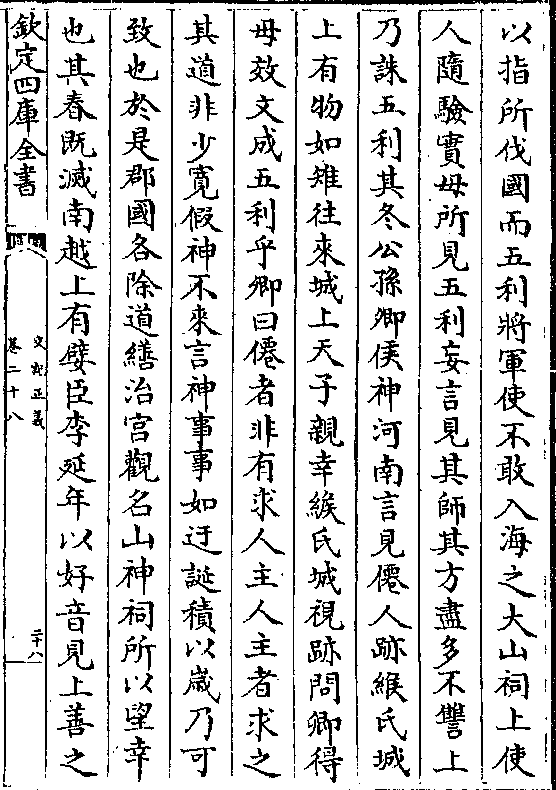 以指所伐國而五利將軍使不敢入海之大山祠上使
人隨驗實毋所見五利妄言見其師其方盡多不讐上
乃誅五利其冬公孫卿俟神河南言見僊人跡緱氏城
上有物如雉往來城上天子親幸緱氏城視跡問卿得
毋效文成五利乎卿曰僊者非有求人主人主者求之
其道非少寛假神不來言神事事如迂誕積以嵗乃可
致也於是郡國各除道繕治宫觀名山神祠所以望幸
也其春旣滅南越上有嬖臣李延年以好音見上善之
欽定四庫全書
史記正義
卷二十八
二十八